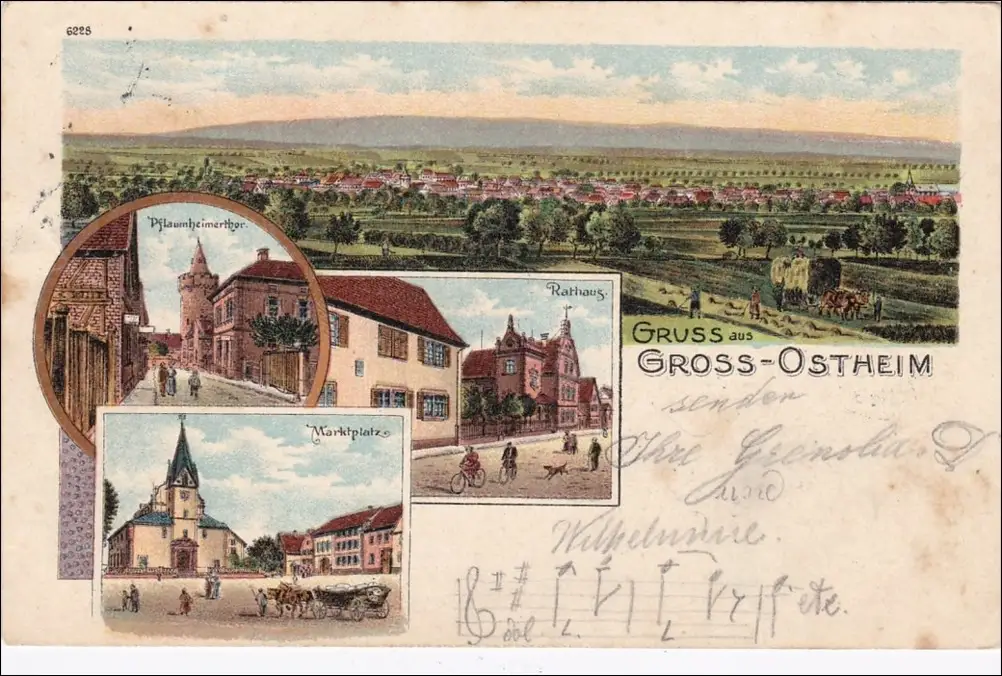 6228
Pflaumheimerthor.
Rathaus.
GRUSS aus
GROSS-OSTHEIM
Marktplatz
senden
Ihre
und
Wilhelmine.
dol
L. L. etc.